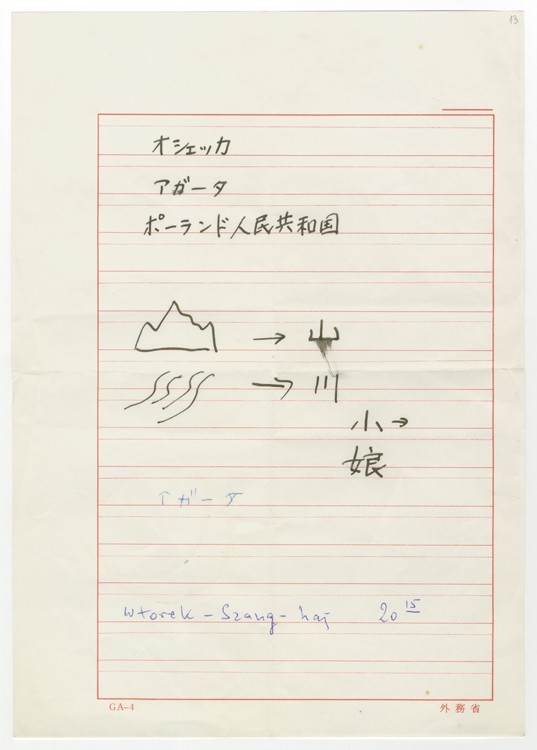 13
オシェッカ
アガータ
ポーランド人民共和国
→ 山
→ 川
小→
娘
アガータ
wtorek - Szang-haj 20 15
GA-4 外務省